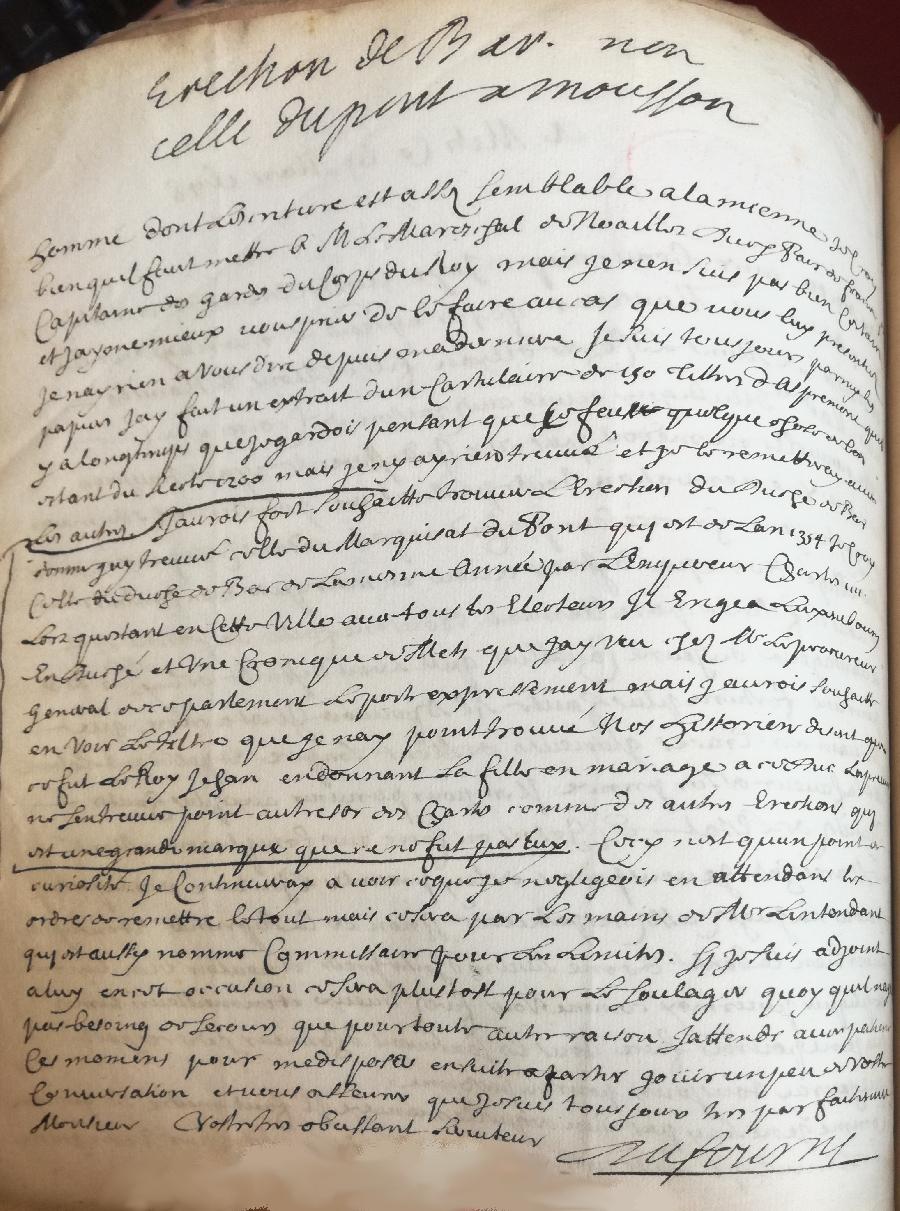 Erection de Bar. non
celle du pont a mousson
homme dont Lescriture est assez semblable a la mienne Je croy
bien quil faut mettre a M Le Mareschal de Noailles Duc & Pair de france
Capitaine des gardes du Corps du Roy mais Je nen suis pas bien Certain
et Jayme mieux vous prier de le faire au cas que vous luy presentiez
Je nay rien a vous dire depuis ma derniere Je suis tousjours parmy les
papiers Jay fait un extrait dun Cartulaire de 150 tiltres dAspremont quil
y a longtemps que Je gardois pensant que Ce feust quelque chose de bon
estant du siecle 1200 mais Je ny ay rien treuué et Je le remettray avec
Les autres Jaurois fort souhaitté trouver LErection du Duché de Bar
comme Jay treuué celle du Marquisat du Pont qui est de Lan 1354 Je croy
Celle du duché de Bar de La mesme Année par LEmpereur Charles
Lors questant en Cette Ville avec tous les Electeurs Il Erigea Luxembourg
En Duché et Une Cronique de Mets que Jay veu chez Mr Le procureur
general de ce parlement Le porte expressement mais Jaurois souhaitté
en voir Le Tiltre que Je nay point trouué Nos Historiens disent que
ce fut Le Roy Jehan en donnant sa fille en mariage a ce Duc
ne sen treuve point au tresor des Chartes comme des autres Erections qui
est une grande marque que ce ne fut pas Luy. Cecy nest quun point de
curiosité Je Continueray a voir ce que Je negligeois en attendant les
ordres de remettre le tout mais ce sera par Les mains de Mr Lintendant
qui est aussy nommé Commissaire pour Les Limites. Sy Je suis adjoint
a luy en cet occasion ce sera plustost pour Le soulager quoy quil nayt
pas besoing de secours que pour toute autre raison Jattends avec patience
Ces momens pour me disposer en suitte a partir Jouir un peu de vostre
Conversation et vous asseurer que Je suis tousjours tres parfaitement
Monsieur Vostre tres obeissant serviteur
Dufourny